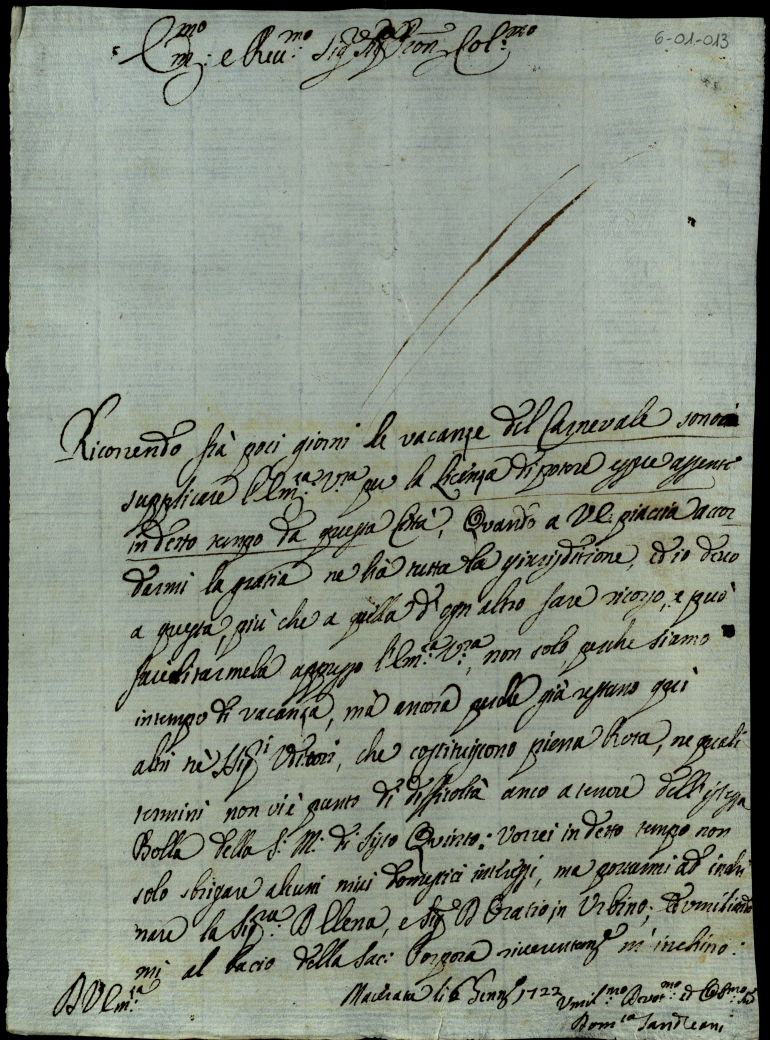 6-01-013
Em.mo e Rev.mo Sig.r Pron Col.mo
Ricorrendo frà poci giorni le vacanze del Carnevale sono à
supplicare l'Em.za V.ra per la licenza di potere essere assente
in detto tempo da questa Città, Quando a V.E. piaccia accor
darmi la gratia ne hà tutta la giurisditione, ed io devo
a questa, più che a quella d'ogn altro fare ricorso, e può
facilitarmela appresso l'Em.za V.ra, non solo perche siamo
in tempo di vacanza, mà ancora perche già restano qui
altri trè SS.ri Uditori, che costituiscono piena Rota, ne quali
termini non vi è punto di difficoltà anco a tenore dell'istessa
Bolla della S: M: di Sisto Quinto: Vorrei in detto tempo non
solo sbrigare alcuni miei domestici interessi, ma portarmi ad inchi
nare la Sig.ra D Elena, e Sig.r D Oratio in Urbino; ed umiliando
mi al bacio della Sac: Porpora riverentem.e m'inchino:
D V Em.za
Macerata li 6 Genn.o 1722
Umil.mo Devot.mo ed Obb.mo